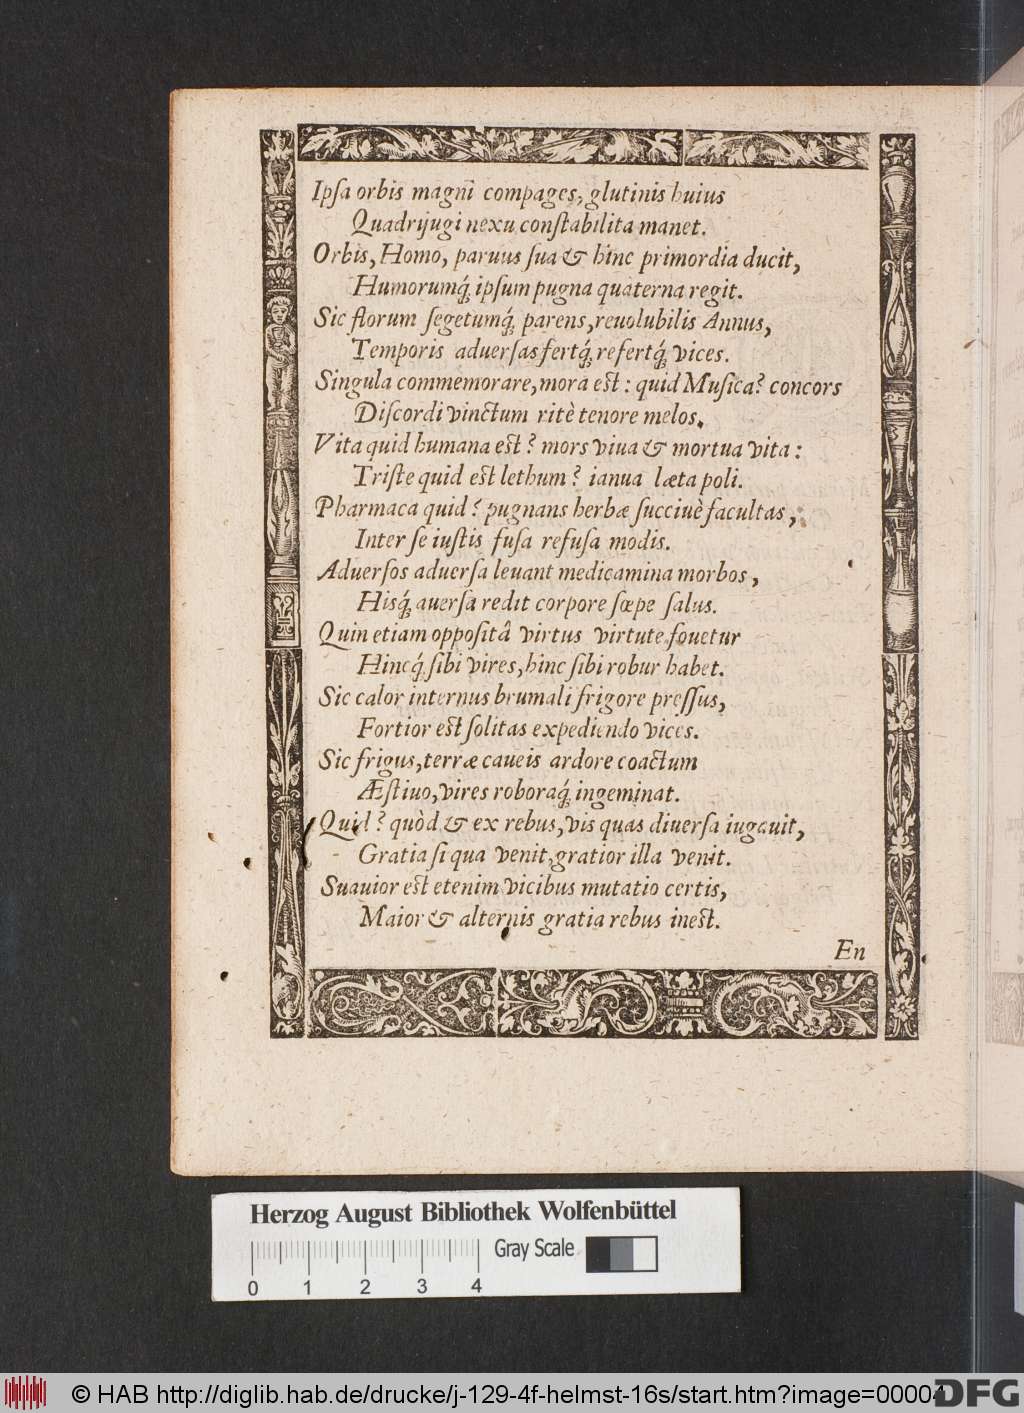 Ipſa orbis magni compages, glutinis huius
Quadrijugi nexu conſtabilita manet.
Orbis, Homo, paruus ſua & hinc primordia ducit,
Humorumq́; ipſum pugna quaterna regit.
Sic florum ſegetumq́; parens, reuolubilis Annus,
Temporis aduerſas fertq́; refertq́; vices.
Singula commemorare, mora eſt: quid Muſica? concors
Diſcordi vinctum ritè tenore melos.
Vita quid humana eſt? mors viua & mortua vita:
Triſte quid eſt lethum? ianua læta poli.
Pharmaca quid? pugnans herbæ ſucciuè facultas,
Inter ſe iuſtis fuſa refuſa modis.
Aduerſos aduerſa leuant medicamina morbos,
Hisq́; auerſa redit corpore ſœpe ſalus.
Quin etiam oppoſitâ virtus virtute fouetur
Hincq́; ſibi vires, hinc ſibi robur habet.
Sic calor internus brumali frigore preſſus,
Fortior eſt ſolitas expediendo vices.
Sic frigus, terræ caueis ardore coactum
Æſtiuo, vires roboraq́; ingeminat.
Quid? quòd & ex rebus, vis quas diuerſa iugauit,
Gratia ſi qua venit, gratior illa venit.
Suauior eſt etenim vicibus mutatio certis,
Maior & alternis gratia rebus ineſt.
En
Herzog August Bibliothek Wolfenbüttel
Gray Scale
0 1 2 3 4
© HAB http://diglib.hab.de/drucke/j-129-4f-helmst-16s/start.htm?image=00004
DFG